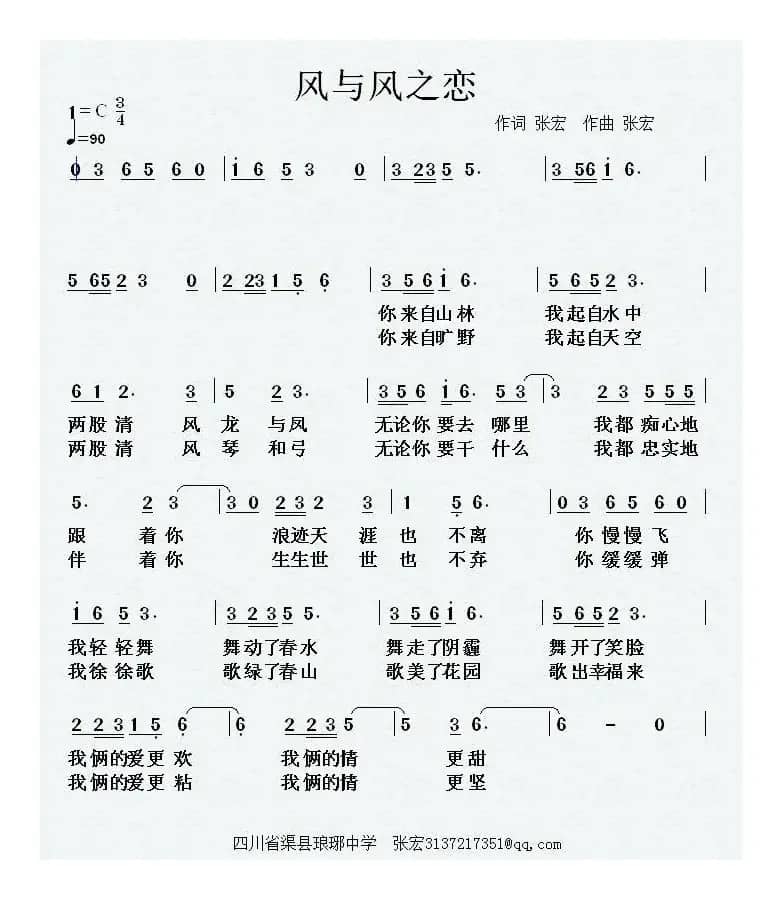 风与风之恋
1=C 3/4
♩=90
作词 张宏 作曲 张宏
0 3 6 5 6 0 | i 6 5 3 0 | 3 23 5 5. | 3 56 i 6. |
5 65 2 3 0 | 2 23 1 5 6 | 3 5 6 i 6. | 5 6 5 2 3. |
你来自山林 我起自水中
你来自旷野 我起自天空
6 1 2. 3 | 5 2 3. | 3 5 6 i 6. 5 3 | 3 2 3 5 5 5 |
两股清 风 龙 与凤 无论你要去 哪里 我都 痴心地
两股清 风 琴 和弓 无论你要干 什么 我都 忠实地
5. 2 3 | 3 0 2 3 2 3 | 1 5 6. | 0 3 6 5 6 0 |
跟 着你 浪迹天 涯 也 不离 你 慢慢飞
伴 着你 生生世 世 也 不弃 你 缓缓弹
i 6 5 3. | 3 2 3 5 5. | 3 5 6 i 6. | 5 6 5 2 3. |
我轻轻舞 舞动了春水 舞走了阴霾 舞开了笑脸
我徐徐歌 歌绿了春山 歌美了花园 歌出幸福来
2 2 3 1 5 6 | 6 2 2 3 5 | 5 3 6. | 6 - 0 |
我俩的爱更 欢 我俩的情 更甜
我俩的爱更 粘 我俩的情 更坚
四川省渠县琅琊中学 张宏3137217351@qq.com